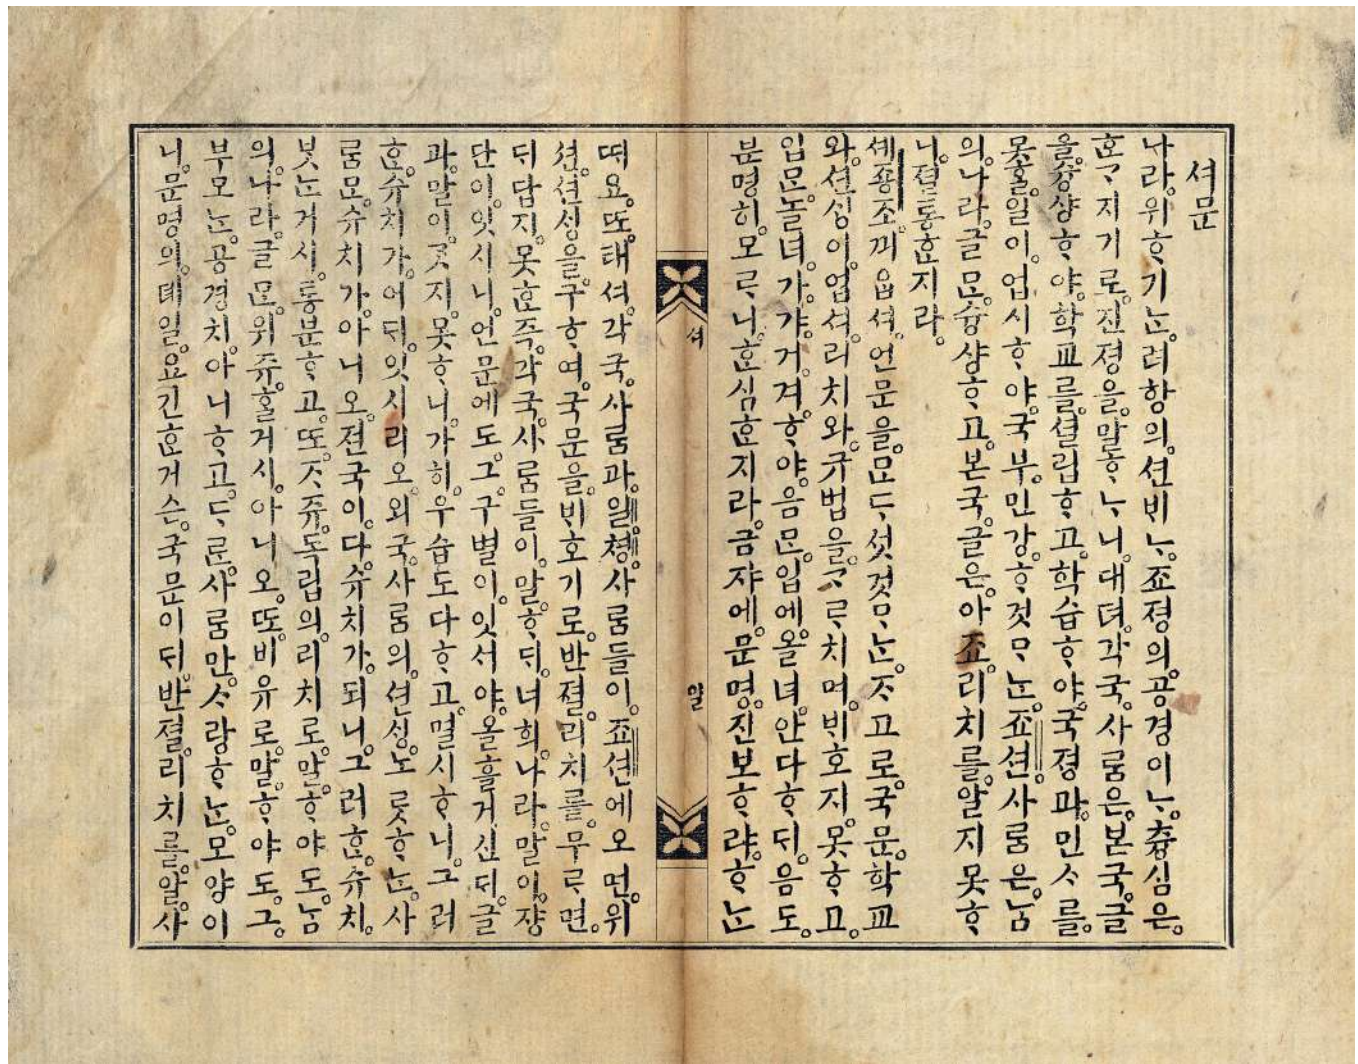 셔문
나라.위ᄒᆞ기ᄂᆞᆫ.려항의.션ᄇᆡᄂᆞ.죠졍의.공경이ᄂᆞ.츙심은.
ᄒᆞᆫᄀᆞ지기로.진졍을.말ᄒᆞᄂᆞ니.대뎌.각국.사ᄅᆞᆷ은.본국.글
을.슝샹ᄒᆞ야.학교를.셜립ᄒᆞ고.학습ᄒᆞ야.국졍과.민ᄉᆞ를.
못ᄒᆞᆯ일이.업시ᄒᆞ야.국부.민강.ᄒᆞ것ᄆᆞᄂᆞᆫ.죠션.사ᄅᆞᆷ은.ᄂᆞᆷ
의.나라.글ᄆᆞᆫ.슝샹ᄒᆞ고.본국.글은.아죠.리치를.알지못ᄒᆞ
니.졀통ᄒᆞᆫ지라.
셰죵조ᄭᅴ읍셔.언문을.ᄆᆞᆫᄃᆞ셧것ᄆᆞᄂᆞᆫ.ᄌᆞ고로.국문.학교
와.션ᄉᆡᆼ이.업셔.리치와.규법을.ᄀᆞᄅᆞ치며.ᄇᆡ호지.못ᄒᆞ고.
입ᄆᆞᆫ놀녀.가갸.거겨.ᄒᆞ야.음ᄆᆞᆫ.입에.올녀.안다ᄒᆞᄃᆡ.음도.
분명히.모ᄅᆞ니.ᄒᆞᆫ심ᄒᆞᆫ지라.금쟈에.문명.진보ᄒᆞ랴.ᄒᆞᄂᆞᆫ
셔
일
ᄯᅢ요.ᄯᅩ.태셔.각국.사ᄅᆞᆷ과.일.쳥.사ᄅᆞᆷ들이.죠션에오면.위
션.션ᄉᆡᆼ을.구ᄒᆞ여.국문을.ᄇᆡ호기로.반졀.리치를.무ᄅᆞ면.
ᄃᆡ답지.못ᄒᆞᆫ즉.각국.사ᄅᆞᆷ들이.말ᄒᆞᄃᆡ.너희.나라.말이.쟝
단이.잇시니.언문에도.그.구별이.잇서야.올흘거신ᄃᆡ.글
과.말이.ᄀᆞᆺ지.못ᄒᆞ니.가히.우습도다ᄒᆞ고.멸시ᄒᆞ니.그러
ᄒᆞᆫ.슈치가.어ᄃᆡ.잇시리오.외국.사ᄅᆞᆷ의.션ᄉᆡᆼ노릇ᄒᆞᄂᆞᆫ.사
ᄅᆞᆷᄆᆞᆫ.슈치가.아니오.젼국이.다.슈치가.되니.그러ᄒᆞᆫ.슈치.
붓ᄂᆞᆫ거시.통분ᄒᆞ고.ᄯᅩ.ᄌᆞ쥬.독립의.리치로.말ᄒᆞ야도.ᄂᆞᆷ
의.나라.글ᄆᆞᆫ.위쥬.ᄒᆞᆯ거시.아니오.ᄯᅩ.비유로.말ᄒᆞ야도.그.
부모ᄂᆞᆫ.공경치.아니ᄒᆞ고.ᄃᆞᄅᆞᆫ.사ᄅᆞᆷ만.ᄉᆞ랑ᄒᆞᄂᆞᆫ.모양이
니.문명의.뎨일.요긴ᄒᆞᆫ거슨.국문이ᄃᆡ.반졀.리치를.알.사